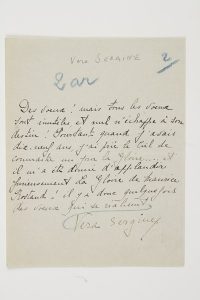 Vera SERGINE
2
2 ar
Des voeux ! mais tous les voeux
sont inutiles et nul n'échappe à son
destin ! Pourtant quand j'avais
dix-neuf ans j'ai prié le ciel de
connaître un jour la Gloire.... et
il m'a été donné d'applaudir
la Gloire de Maurice
Rostand ! il y a donc quelquefois
des voeux qui se réalisent !
Vera Sergine